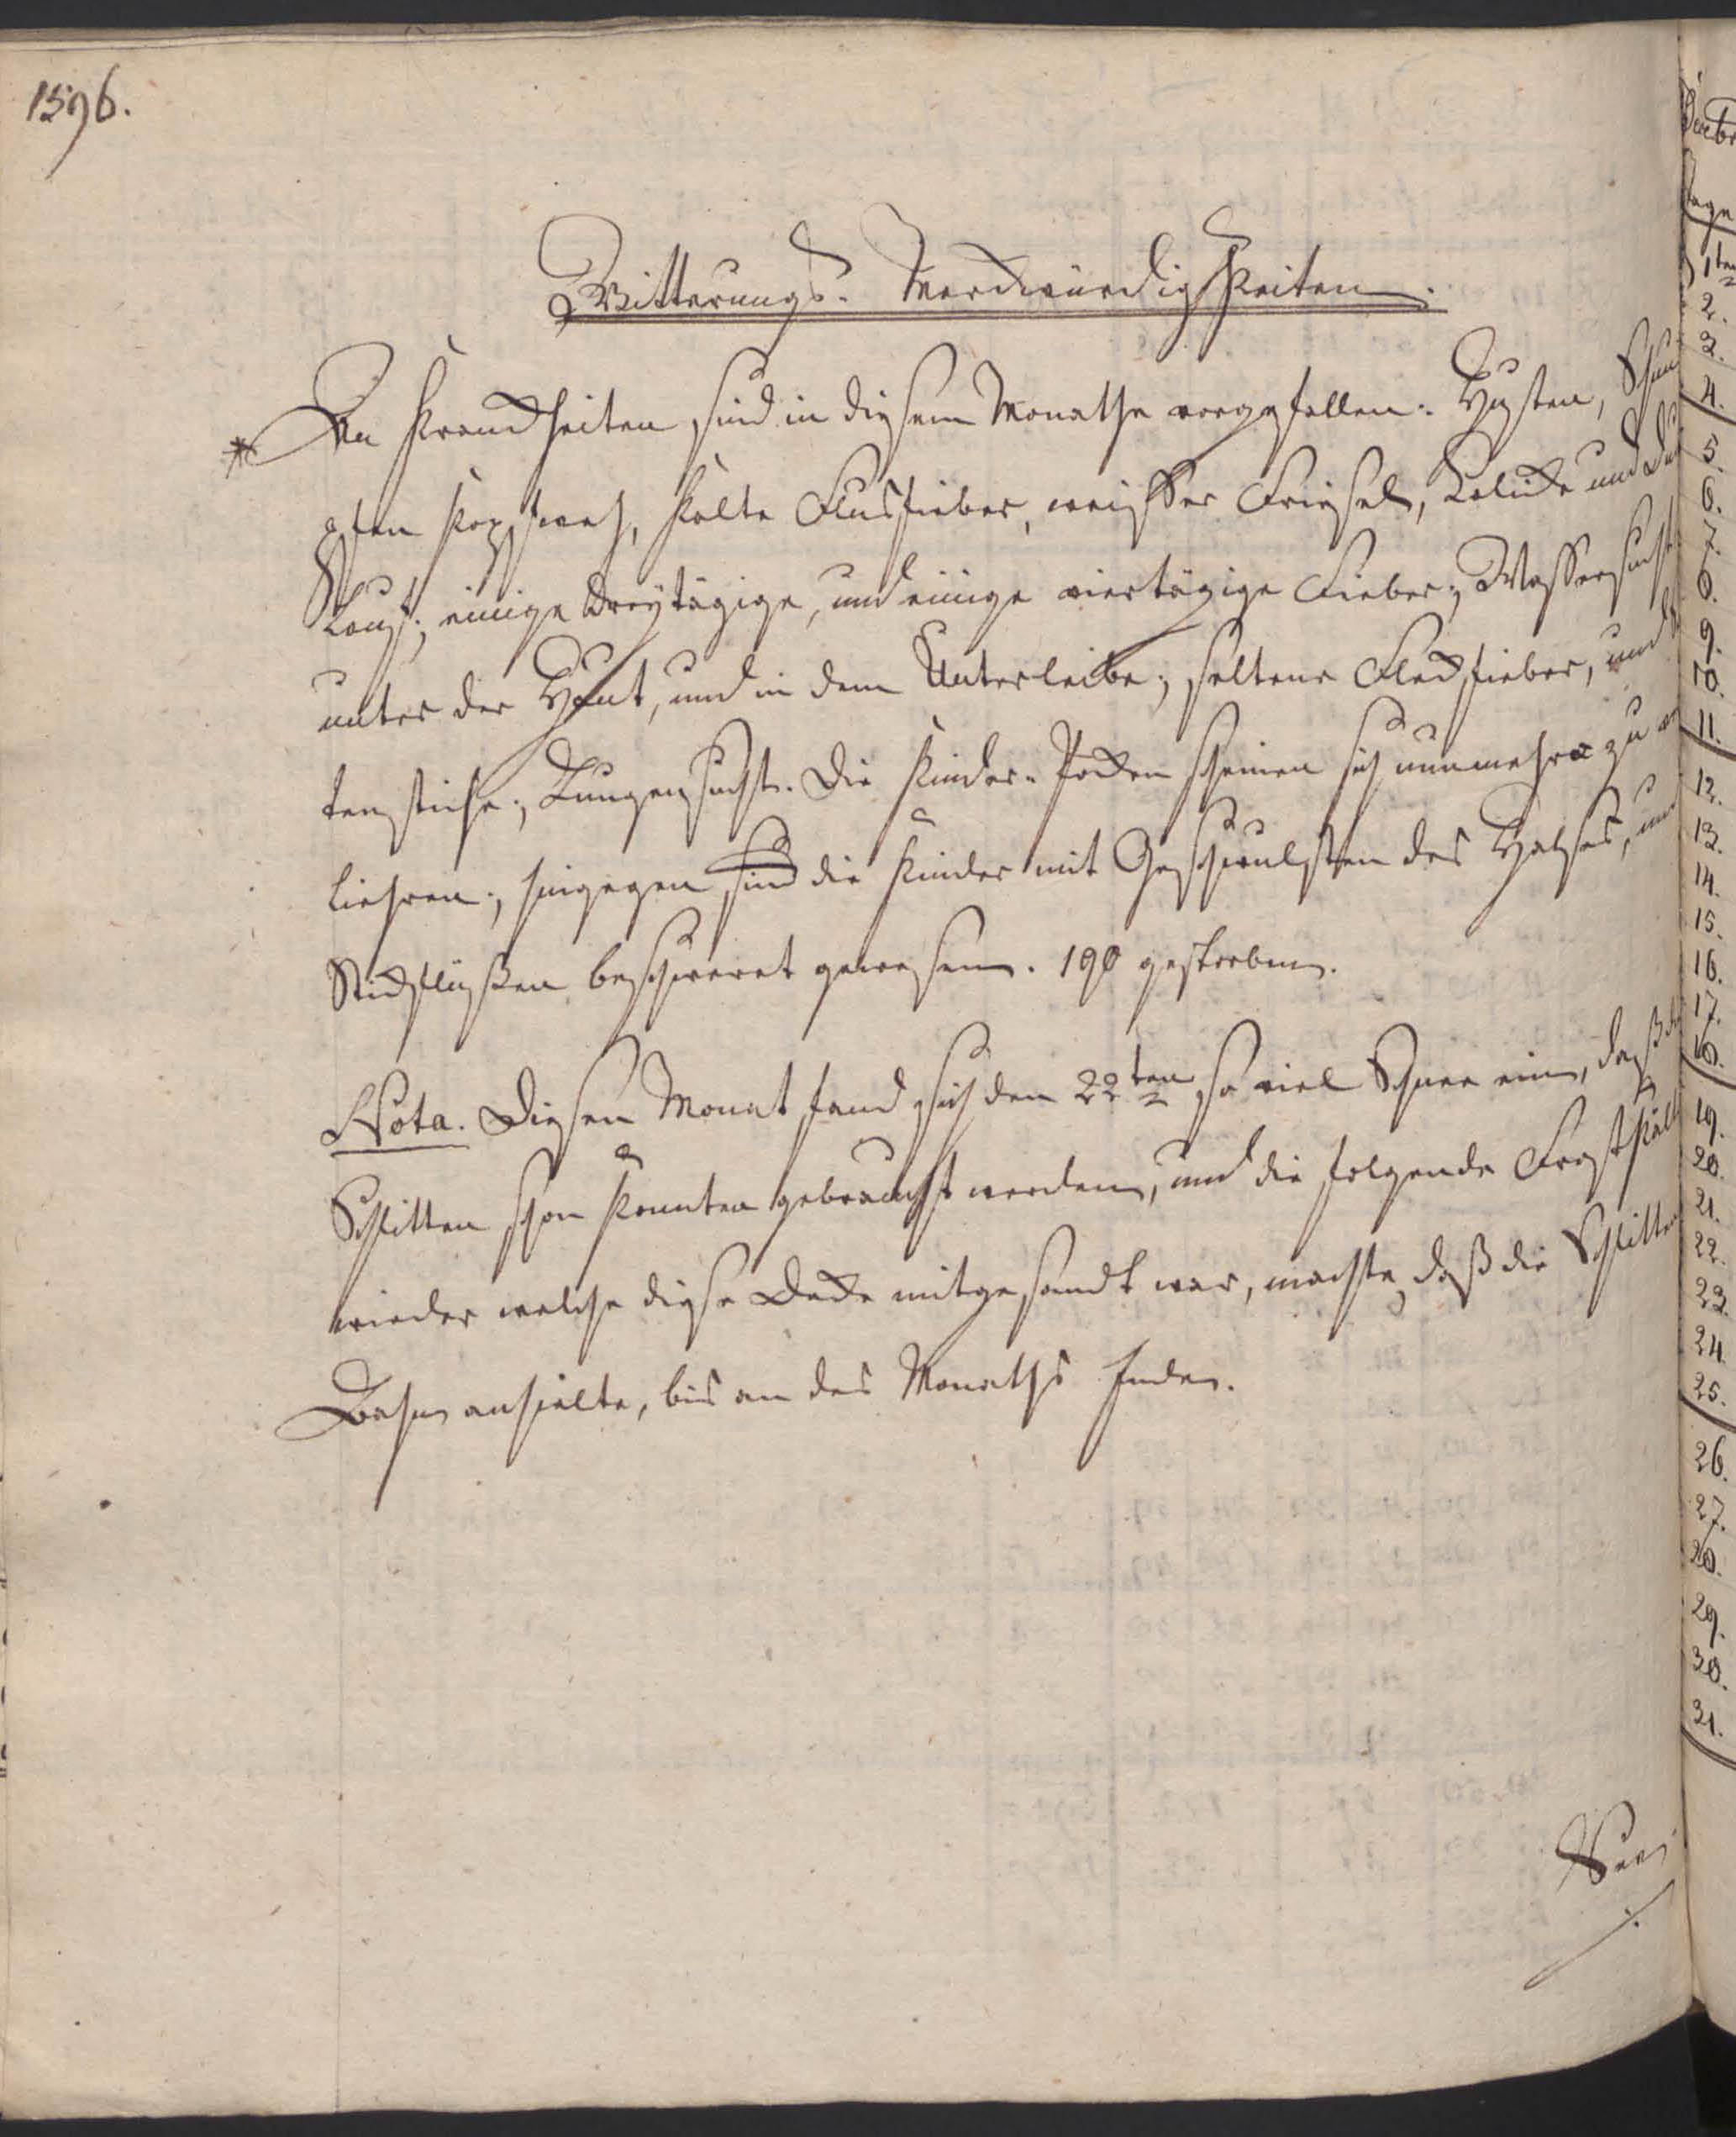 1596.
Witterungs- Merckwürdigkeiten.
* An Kranckheiten sind in diesem Monathe vorgefallen: Husten, Schnu
pfen Kopfweh, kalte Flusfieber, weisser Friesel, Colicke und Du
Lauf; einige dreytägige, und einige viertägige Fieber; Wassersucht
unter der Haut, und in dem Unterleibe; seltene Fleckfieber, und
tenstiche; Lungensucht. Die Kinder-Pocken scheinen sich nunmehro zu ver
liehren; hingegen sind die Kinder mit Geschwulsten des Halses, und
Stickflüßen beschweret gewesen. 190 gestorben.
Nota. Diesen Monat fand sich den 22ten so viel Schnee ein, daß d
Schlitten schon konnten gebraucht werden, und die folgende Frost Käl
wieder welche diese Decke mitgesandt war, machte, daß die Schlitten
Bahn anhielte, bis an des Monaths Ende.
Decbr
Tage
1ten
2.
3.
4.
5.
6.
7.
8.
9.
10.
11.
12.
13.
14.
15.
16.
17.
18.
19.
20.
21.
22.
23.
24.
25.
26.
27.
28.
29.
30.
31.